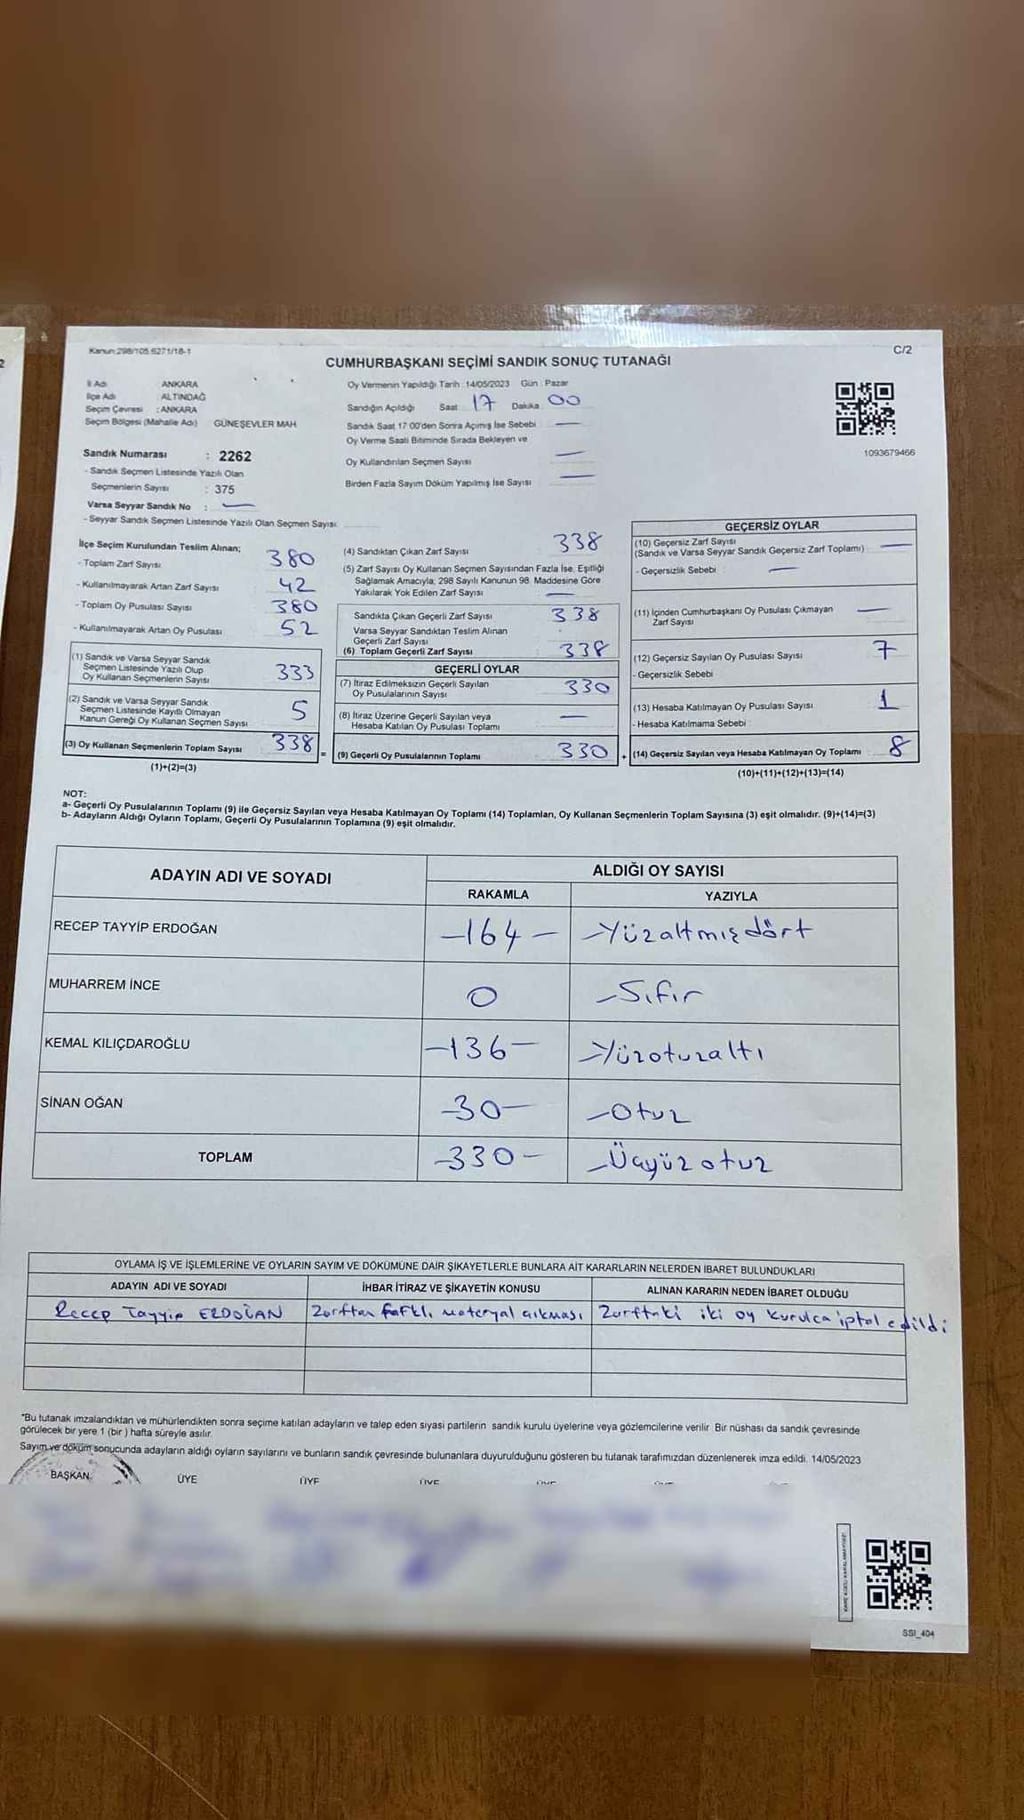 2
Kanun:298/105 6271/18-1
C/2
CUMHURBAŞKANI SEÇİMİ SANDIK SONUÇ TUTANAĞI
İl Adı ANKARA
İlçe Adı ALTINDAĞ
Seçim Çevresi : ANKARA
Seçim Bölgesi (Mahalle Adı) GÜNEŞEVLER MAH
Sandık Numarası : 2262
- Sandık Seçmen Listesinde Yazılı Olan
Seçmenlerin Sayısı : 375
Varsa Seyyar Sandık No : —
- Seyyar Sandık Seçmen Listesinde Yazılı Olan Seçmen Sayısı
Oy Vermenin Yapıldığı Tarih : 14/05/2023 Gün : Pazar
Sandığın Açıldığı Saat 17 Dakika 00
Sandık Saat 17:00'den Sonra Açılmış İse Sebebi —
Oy Verme Saati Bitiminde Sırada Bekleyen ve
Oy Kullandırılan Seçmen Sayısı —
Birden Fazla Sayım Döküm Yapılmış İse Sayısı —
1093679466
İlçe Seçim Kurulundan Teslim Alınan;
- Toplam Zarf Sayısı 380
- Kullanılmayarak Artan Zarf Sayısı 42
- Toplam Oy Pusulası Sayısı 380
- Kullanılmayarak Artan Oy Pusulası 52
(1) Sandık ve Varsa Seyyar Sandık
Seçmen Listesinde Yazılı Olup
Oy Kullanan Seçmenlerin Sayısı 333
(2) Sandık ve Varsa Seyyar Sandık
Seçmen Listesinde Kayıtlı Olmayan
Kanun Gereği Oy Kullanan Seçmen Sayısı 5
(3) Oy Kullanan Seçmenlerin Toplam Sayısı 338
(1)+(2)=(3)
=
(4) Sandıktan Çıkan Zarf Sayısı 338
(5) Zarf Sayısı Oy Kullanan Seçmen Sayısından Fazla İse, Eşitliği
Sağlamak Amacıyla; 298 Sayılı Kanunun 98. Maddesine Göre
Yakılarak Yok Edilen Zarf Sayısı —
Sandıkta Çıkan Geçerli Zarf Sayısı 338
Varsa Seyyar Sandıktan Teslim Alınan
Geçerli Zarf Sayısı
(6) Toplam Geçerli Zarf Sayısı 338
GEÇERLİ OYLAR
(7) İtiraz Edilmeksizin Geçerli Sayılan
Oy Pusulalarının Sayısı 330
(8) İtiraz Üzerine Geçerli Sayılan veya
Hesaba Katılan Oy Pusulası Toplamı —
(9) Geçerli Oy Pusulalarının Toplamı 330
+
GEÇERSİZ OYLAR
(10) Geçersiz Zarf Sayısı
(Sandık ve Varsa Seyyar Sandık Geçersiz Zarf Toplamı) —
- Geçersizlik Sebebi : —
(11) İçinden Cumhurbaşkanı Oy Pusulası Çıkmayan
Zarf Sayısı —
(12) Geçersiz Sayılan Oy Pusulası Sayısı 7
- Geçersizlik Sebebi
(13) Hesaba Katılmayan Oy Pusulası Sayısı 1
- Hesaba Katılmama Sebebi
(14) Geçersiz Sayılan veya Hesaba Katılmayan Oy Toplamı 8
(10)+(11)+(12)+(13)=(14)
NOT:
a- Geçerli Oy Pusulalarının Toplamı (9) ile Geçersiz Sayılan veya Hesaba Katılmayan Oy Toplamı (14) Toplamları, Oy Kullanan Seçmenlerin Toplam Sayısına (3) eşit olmalıdır. (9)+(14)=(3)
b- Adayların Aldığı Oyların Toplamı, Geçerli Oy Pusulalarının Toplamına (9) eşit olmalıdır.
ADAYIN ADI VE SOYADI ALDIĞI OY SAYISI
RAKAMLA YAZIYLA
RECEP TAYYİP ERDOĞAN -164- -Yüzaltmışdört
MUHARREM İNCE 0 -Sıfır
KEMAL KILIÇDAROĞLU -136- -Yüzotuzaltı
SİNAN OĞAN -30- -Otuz
TOPLAM -330- -Üçyüzotuz
OYLAMA İŞ VE İŞLEMLERİNE VE OYLARIN SAYIM VE DÖKÜMÜNE DAİR ŞİKAYETLERLE BUNLARA AİT KARARLARIN NELERDEN İBARET BULUNDUKLARI
ADAYIN ADI VE SOYADI İHBAR İTİRAZ VE ŞİKAYETİN KONUSU ALINAN KARARIN NEDEN İBARET OLDUĞU
Recep Tayyip ERDOĞAN Zarftan farklı materyal çıkması Zarftaki iki oy kurulca iptal edildi
"Bu tutanak imzalandıktan ve mühürlendikten sonra seçime katılan adayların ve talep eden siyasi partilerin sandık kurulu üyelerine veya gözlemcilerine verilir. Bir nüshası da sandık çevresinde
görülecek bir yere 1 (bir ) hafta süreyle asılır.
Sayım ve döküm sonucunda adayların aldığı oyların sayılarını ve bunların sandık çevresinde bulunanlara duyurulduğunu gösteren bu tutanak tarafımızdan düzenlenerek imza edildi. 14/05/2023
BAŞKAN ÜYE ÜYE ÜYE
SSI_404